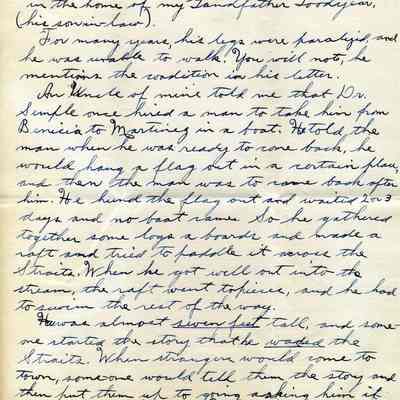 in the home of my Grandfather Goodyear,
(his son-in-law).
For many years, his legs were paralized, and
he was unable to walk. You will note, he
mentions the condition in his letter.
An Uncle of mine told me that Dr.
Semple once hired a man to take him from
Benicia to Martinez in a boat. He told the
man when he was ready to come back, he
would hang a flag out in a certain place,
and then the man was to come back after
him. He hund the flag out and waited 2 or 3
days and no boat came. So he gathered
together some logs & boards and made a
raft and tried to paddle it across the
Straits. When he got well out into the
stream, the raft went to pieces, and he had
to swim the rest of the way.
He was almost seven feet tall, and some-
one started the story that he waded the
Straits. When strangers would come to
town, someone would tell them the story and
then put them up to going asking him if